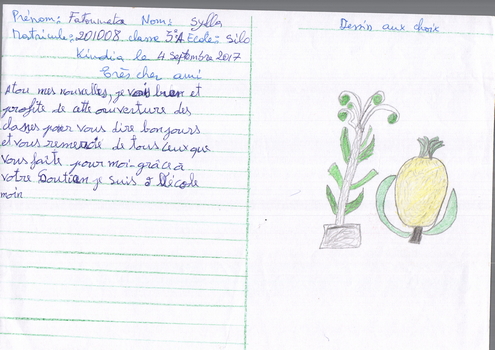 Prénom: Fatoumata Nom: Sylla
Matricule: 201008 classe 5ªA Ecole: Silo
Kindia le 4 Septembre 2017
Très cher ami
Atou mes nouvelles, je vais bien et
profite de cette ouverture des
classes pour vous dire bonjours
et vous remercie de tous ceux que
vous faite pour moi-grâce à
votre Soutien je suis à l'école
moin
Dessin aux choix